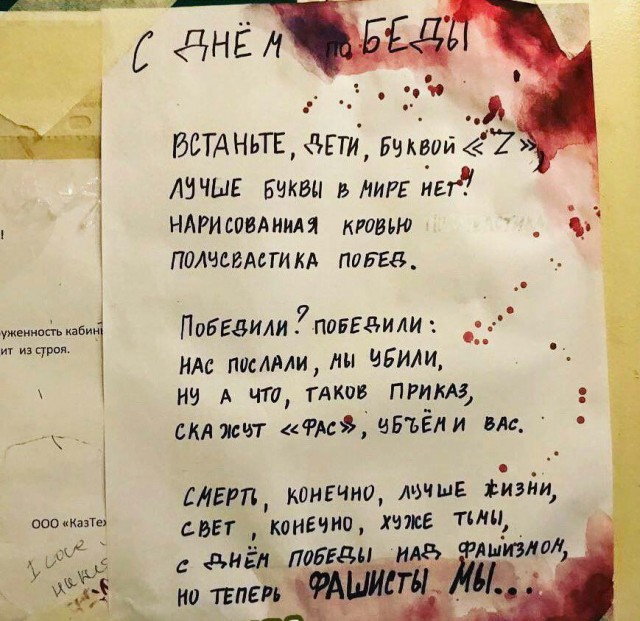 С ДНЁМ поБЕДЫ
ВСТАНЬТЕ, ДЕТИ, БУКВОЙ «Z»,
ЛУЧШЕ БУКВЫ В МИРЕ НЕТ!
НАРИСОВАННАЯ КРОВЬЮ
ПОЛУСВАСТИКА ПОБЕД.
ПОБЕДИЛИ? ПОБЕДИЛИ:
НАС ПОСЛАЛИ, МЫ УБИЛИ,
НУ А ЧТО, ТАКОВ ПРИКАЗ,
СКАЖУТ «ФАС», УБЬЁМ И ВАС.
СМЕРТЬ, КОНЕЧНО, ЛУЧШЕ ЖИЗНИ,
СВЕТ, КОНЕЧНО, ХУЖЕ ТЬМЫ,
С ДНЁМ ПОБЕДЫ НАД ФАШИЗМОМ,
НО ТЕПЕРЬ ФАШИСТЫ МЫ...
!
уженность кабин
ит из строя.
ООО «КазТех
I love